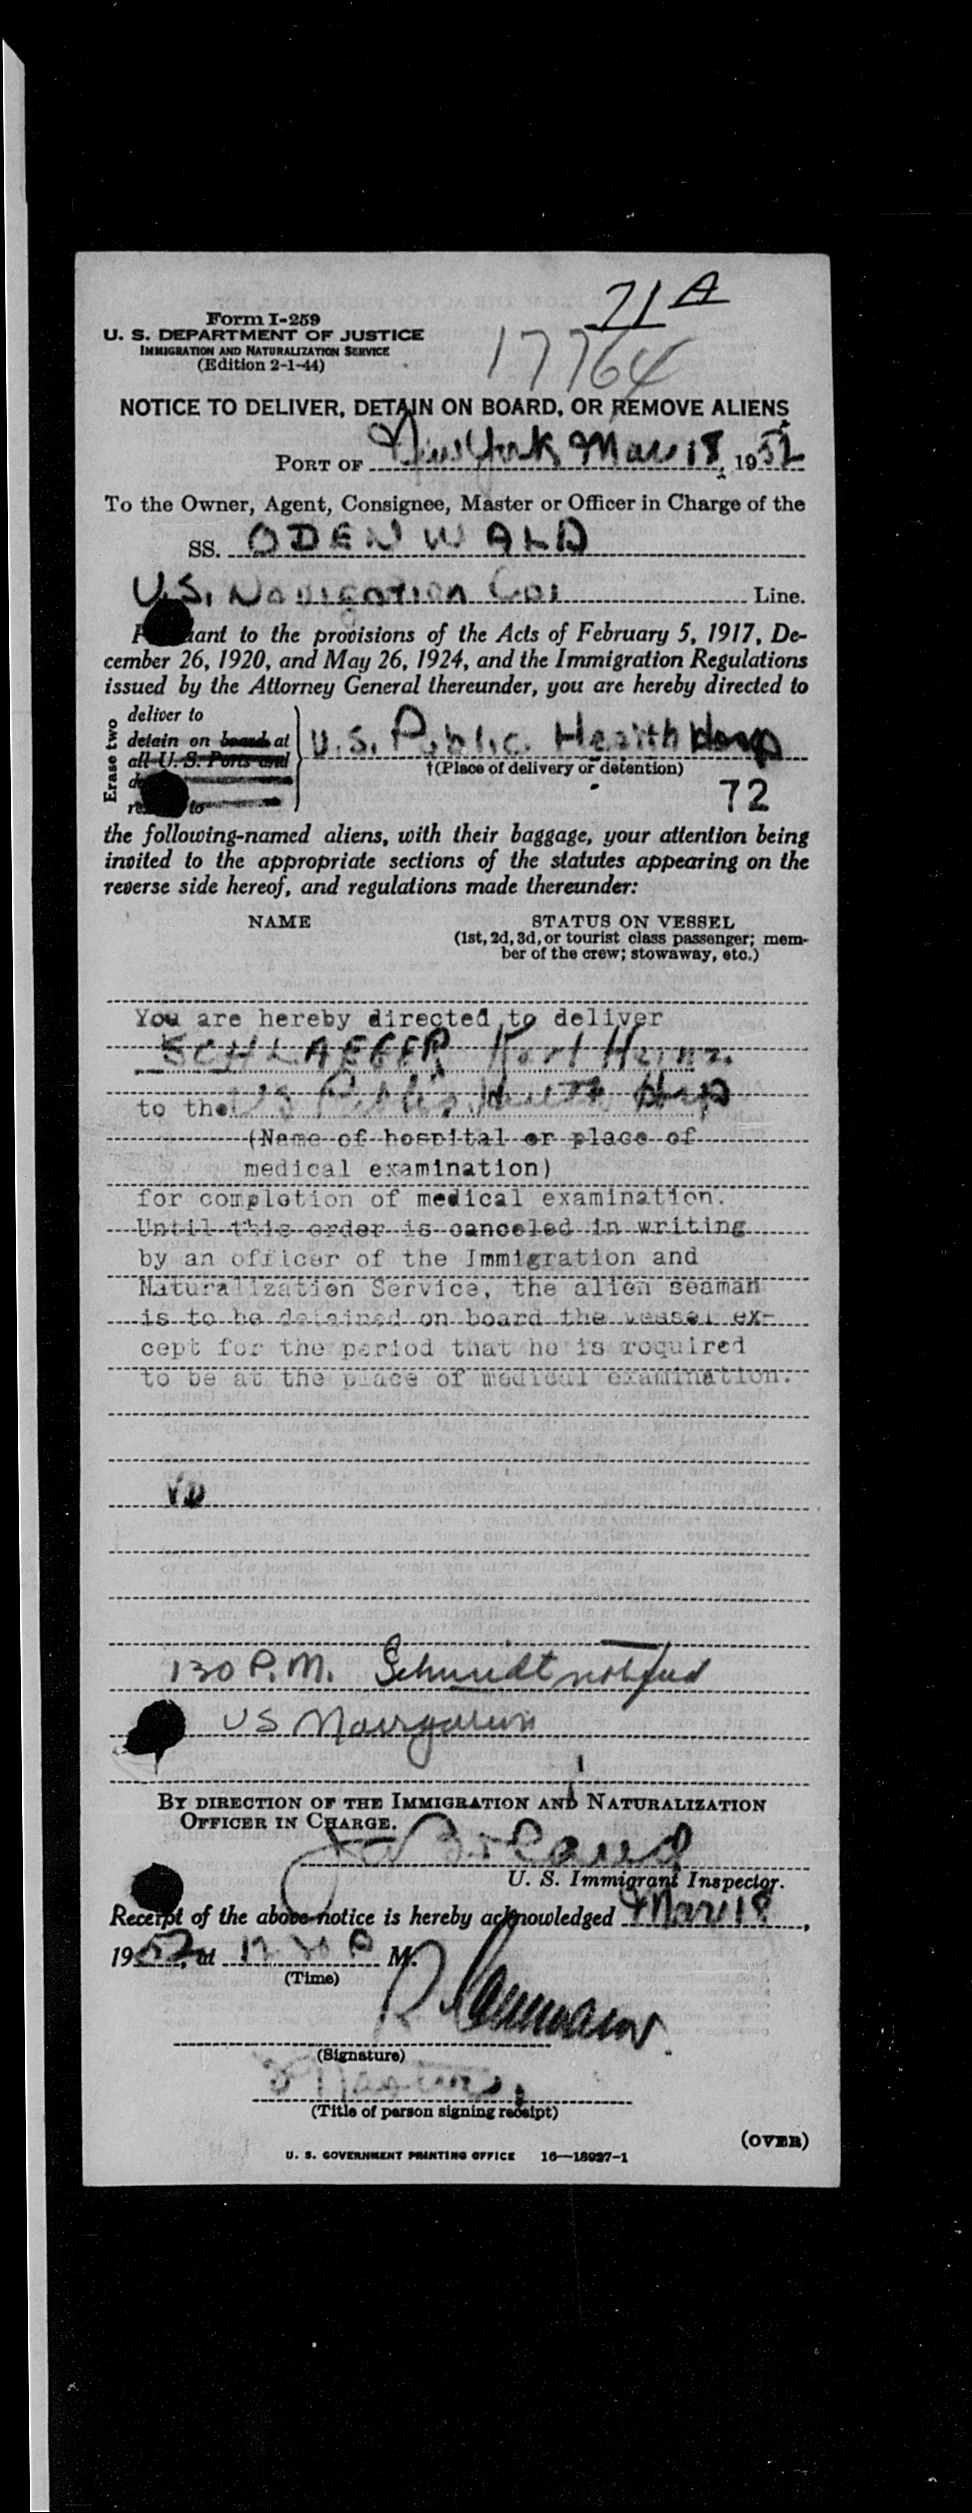 71 A
17764
Form I-259
U. S. DEPARTMENT OF JUSTICE
IMMIGRATION AND NATURALIZATION SERVICE
(Edition 2-1-44)
NOTICE TO DELIVER, DETAIN ON BOARD, OR REMOVE ALIENS
PORT OF New York Mar 18, 1952
To the Owner, Agent, Consignee, Master or Officer in Charge of the
SS. ODENWALD
U.S. Navigation Co. Line.
to the provisions of the Acts of February 5, 1917, De-
cember 26, 1920, and May 26, 1924, and the Immigration Regulations
issued by the Attorney General thereunder, you are hereby directed to
Erase two
deliver to
detain on board at
all U. S. Ports and
to
U.S. Public Health Hosp
†(Place of delivery or detention)
72
the following-named aliens, with their baggage, your attention being
invited to the appropriate sections of the statutes appearing on the
reverse side hereof, and regulations made thereunder:
NAME STATUS ON VESSEL
(1st, 2d, 3d, or tourist class passenger; mem-
ber of the crew; stowaway, etc.)
You are hereby directed to deliver
SCHLAEGER Karl Heinz
to the US Public Health Hosp
(Name of hospital or place of
medical examination)
for completion of medical examination.
Until this order is canceled in writing
by an officer of the Immigration and
Naturalization Service, the alien seaman
is to be detained on board the vessel ex-
cept for the period that he is required
to be at the place of medical examination.
VD
130 P.M. Schmidt notified
US Navigation
BY DIRECTION OF THE IMMIGRATION AND NATURALIZATION
OFFICER IN CHARGE.
U. S. Immigrant Inspector.
Receipt of the above notice is hereby acknowledged Mar 18,
1952, at P M.
(Time)
(Signature)
(Title of person signing receipt)
(OVER)
U. S. GOVERNMENT PRINTING OFFICE 16—18937-1